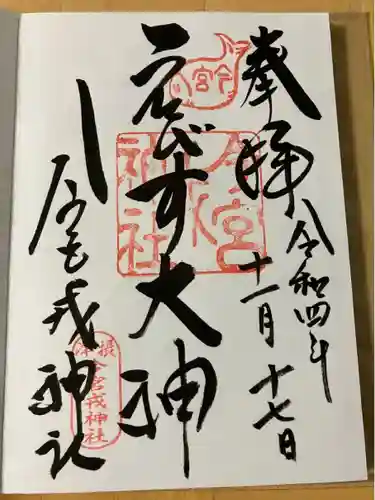 奉拝
令和四年
十一月十七日
えびす大神
今宮戎神社
今宮
今宮戎神社
摂津
今宮戎神社